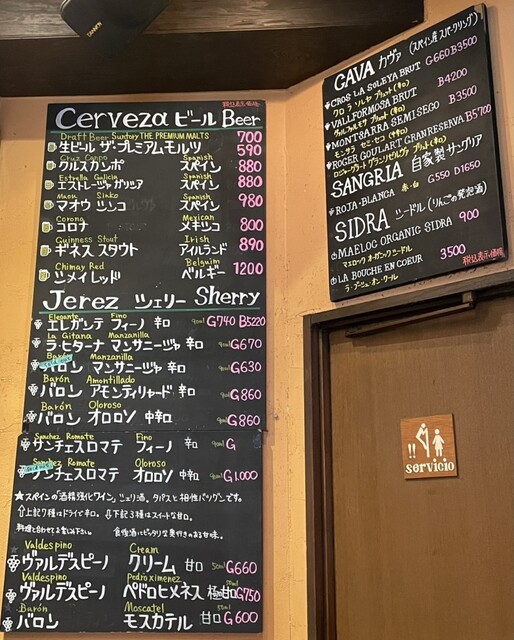 税込表示価格
Cerveza ビール Beer
Draft Beer Suntory THE PREMIUM MALTS 700
生ビール ザ・プレミアムモルツ 590
Cruz Campo Spanish
クルスカンポ スペイン 880
Estrella Galicia Spanish
エストレージャ ガリシア スペイン 880
Spanish
マオウ シンコ スペイン 980
Corona Mexican
コロナ メキシコ 800
Guinness Stout Irish
ギネス スタウト アイルランド 890
Chimay Red Belguim
シメイ レッド ベルギー 1200
Jerez シェリー Sherry
Elegante Fino
エレガンテ フィーノ 辛口 G740 B5220
La Gitana Manzanilla
ラ・ヒターナ マンサニージャ 辛口 G670
Barón Manzanilla
バロン マンサニージャ 辛口 G630
Barón Amontillado
バロン アモンティリャード 辛口 G860
Barón Oloroso
バロン オロロソ 中辛口 G860
Sanchez Romate Fino
サンチェスロマテ フィーノ 辛口 G
Sanchez Romate Oloroso
サンチェスロマテ オロロソ 中辛口 G1,000
★スペインの「酒精強化ワイン」シェリー酒。タパスと相性バツグンです。
⇧上記7種はドライで辛口。⇩下記3種はスイートな甘口。
料理と合わせてお楽しみ下さい。 食後酒にピッタリな奥行きのある甘味。
Valdespino Cream
ヴァルデスピーノ クリーム 甘口 50ml G660
Valdespino Pedro ximenez
ヴァルデスピーノ ペドロヒメネス 極甘口 50ml G750
Barón Moscatel
バロン モスカテル 甘口 50ml G600
CAVA カヴァ (スペイン産スパークリング)
CROS LA SOLEYA BRUT G660 B3500
クロ ラ ソレヤ ブルット (辛口)
VALLFORMOSA BRUT B4200
ヴァルフォルモサ ブルット (辛口)
MONTSARRA SEMISECO B3500
モンサラ セミ・セコ (中辛口)
ROGER GOULART GRAN RESERVA B5700
ロジャーグラート グランレゼルヴァ ブルット (辛口)
SANGRIA 自家製サングリア
ROJA・BLANCA 赤・白 G550 D1650
SIDRA シードル (りんごの発泡酒)
MAELOC ORGANIC SIDRA 900
マエロック オーガニックシードル
LA BOUCHE EN COEUR 3500
ラ・ブーシュ・オン・クール
税込表示価格
!!
servicio